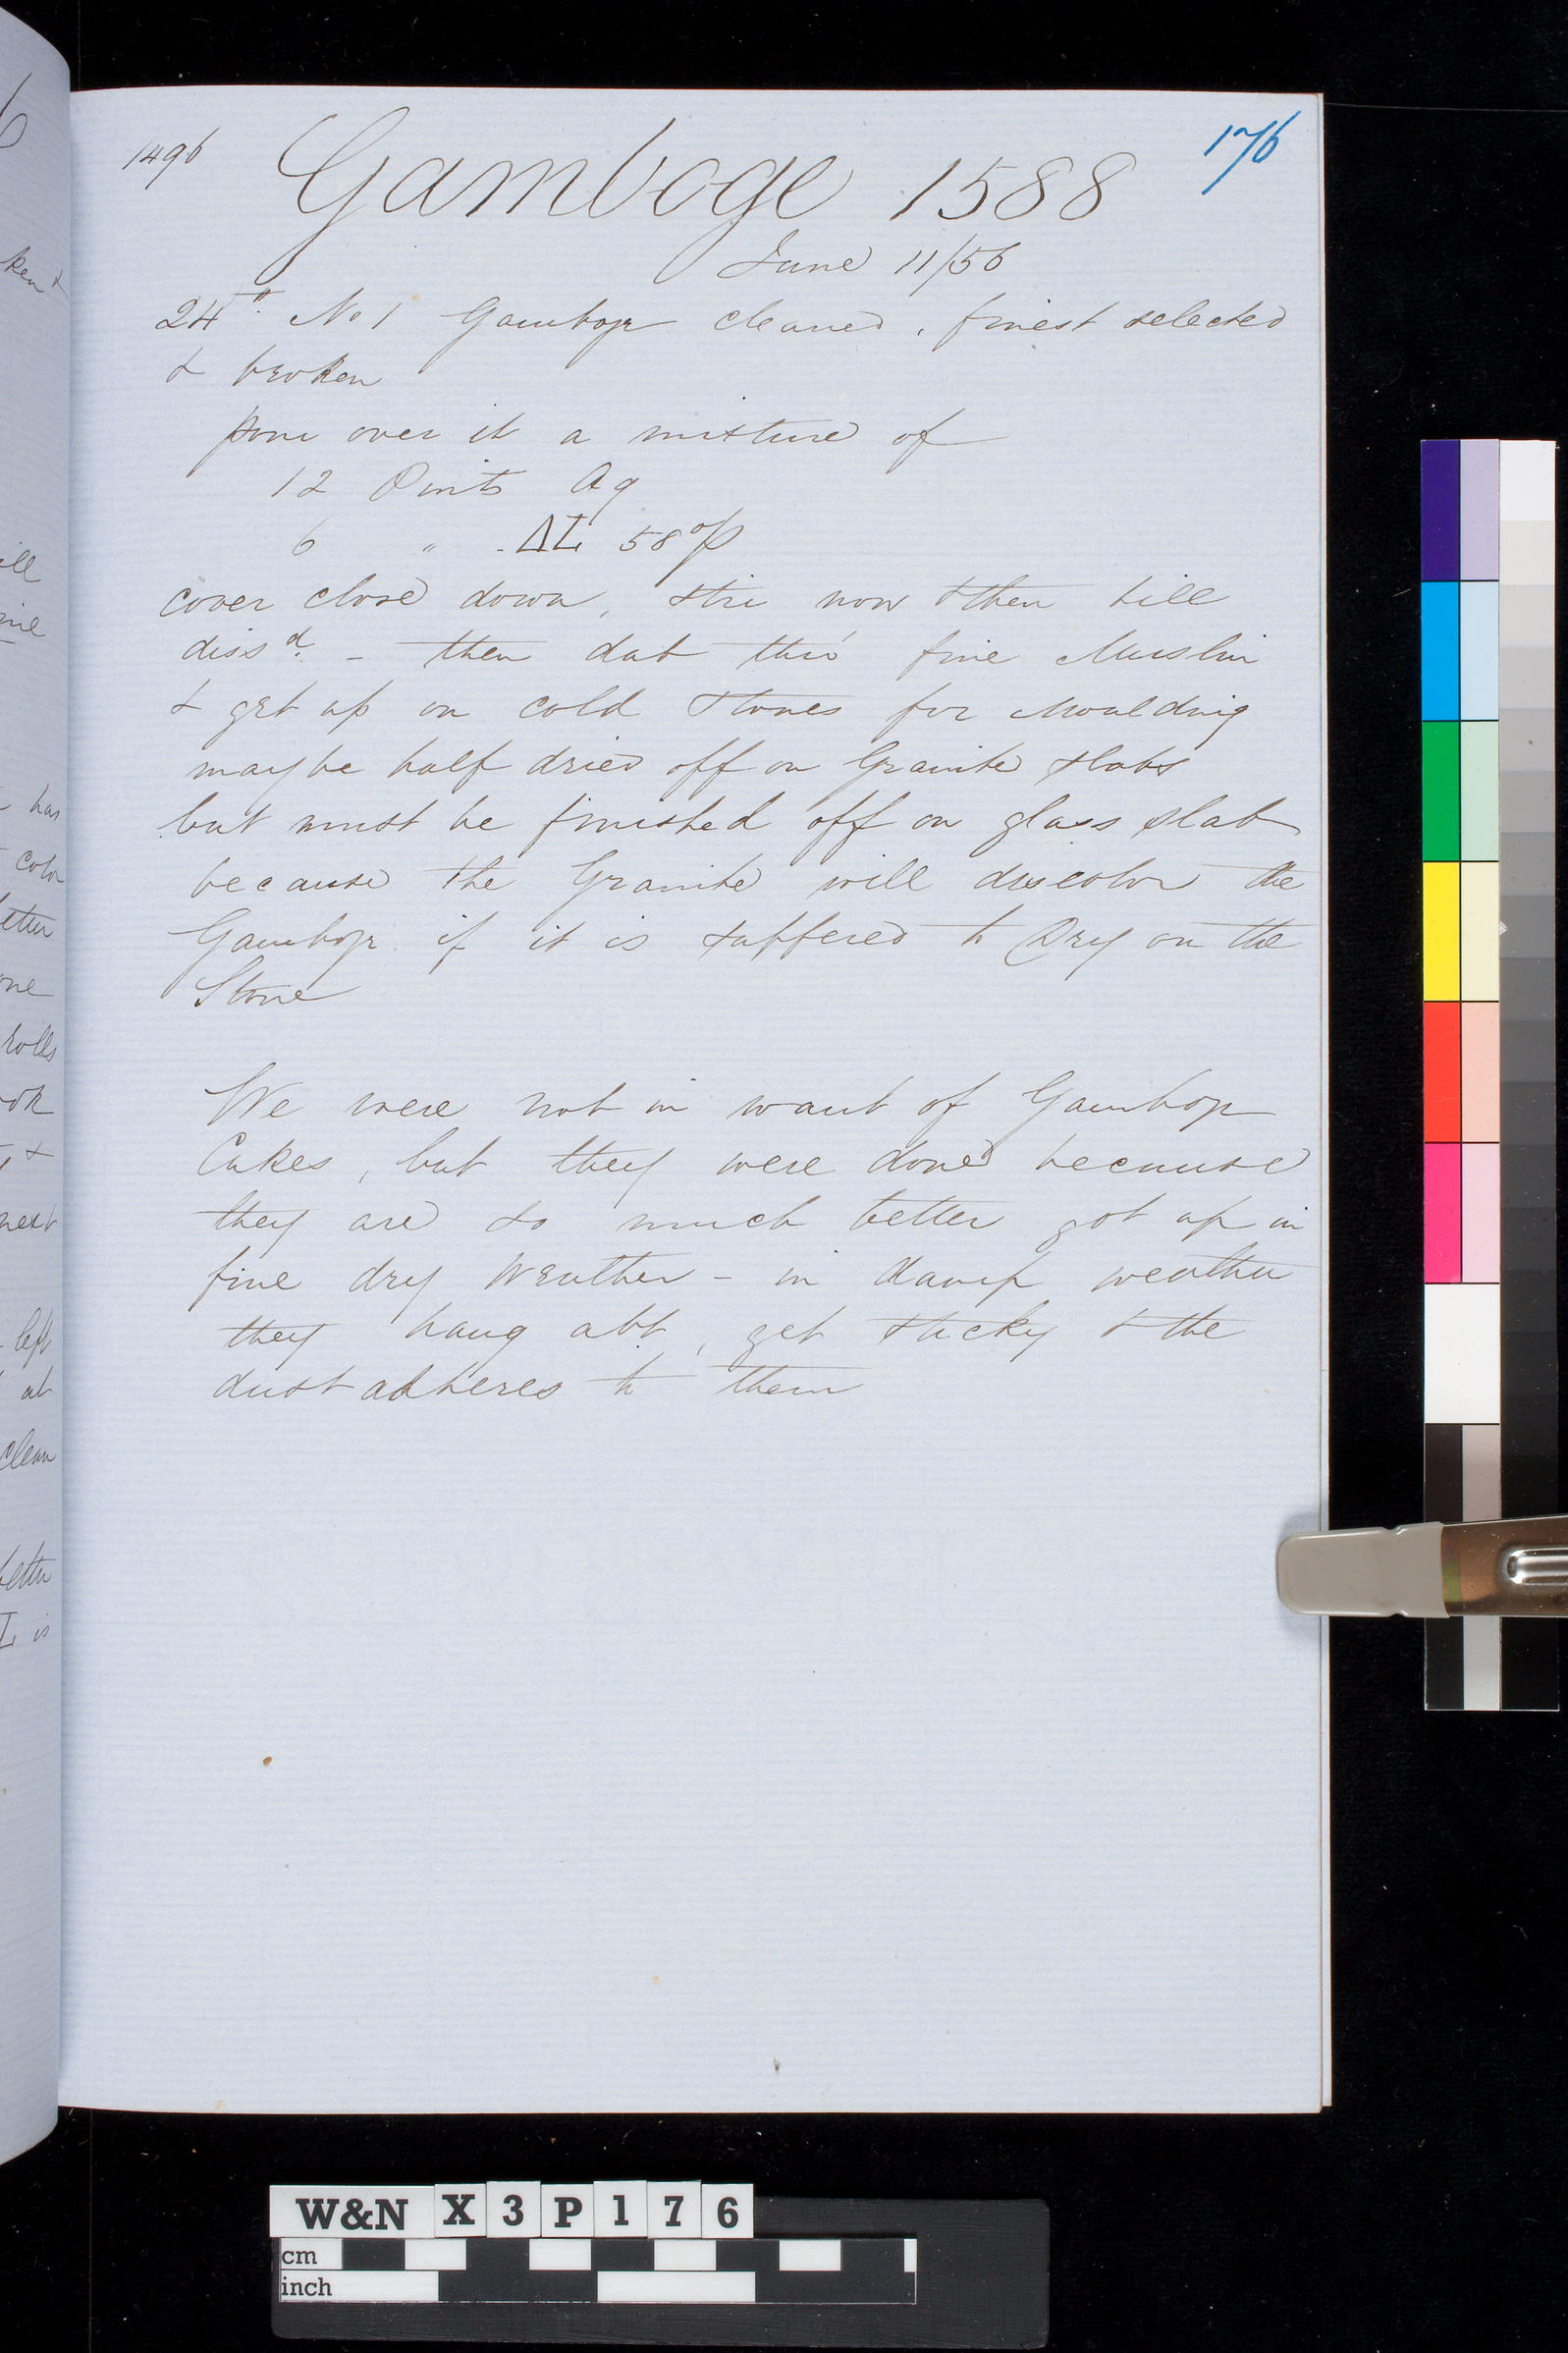 1496 Gamboge 1588 176
June 11/56
24". No 1 Gamboge cleaned, finest selected
& broken
pour over it a mixture of
12 Pints Aq
6 " ΔL 58 o/p
cover close down, stir now & then till
dissd. - then dab thro' fine Muslin
& get up on cold stones for Moulding
may be half dried off on Granite slabs
but must be finished off on glass slab
because the Granite will discolor the
Gamboge if it is suffered to Dry on the
Stone
We were not in want of Gamboge
Cakes, but they were done because
they are so much better got up in
fine dry weather - in damp weather
they hang abt, get sticky & the
dust adheres to them
has
color
better
rolls
next
left
at
clean
better
is
W&N X3P176
cm
inch